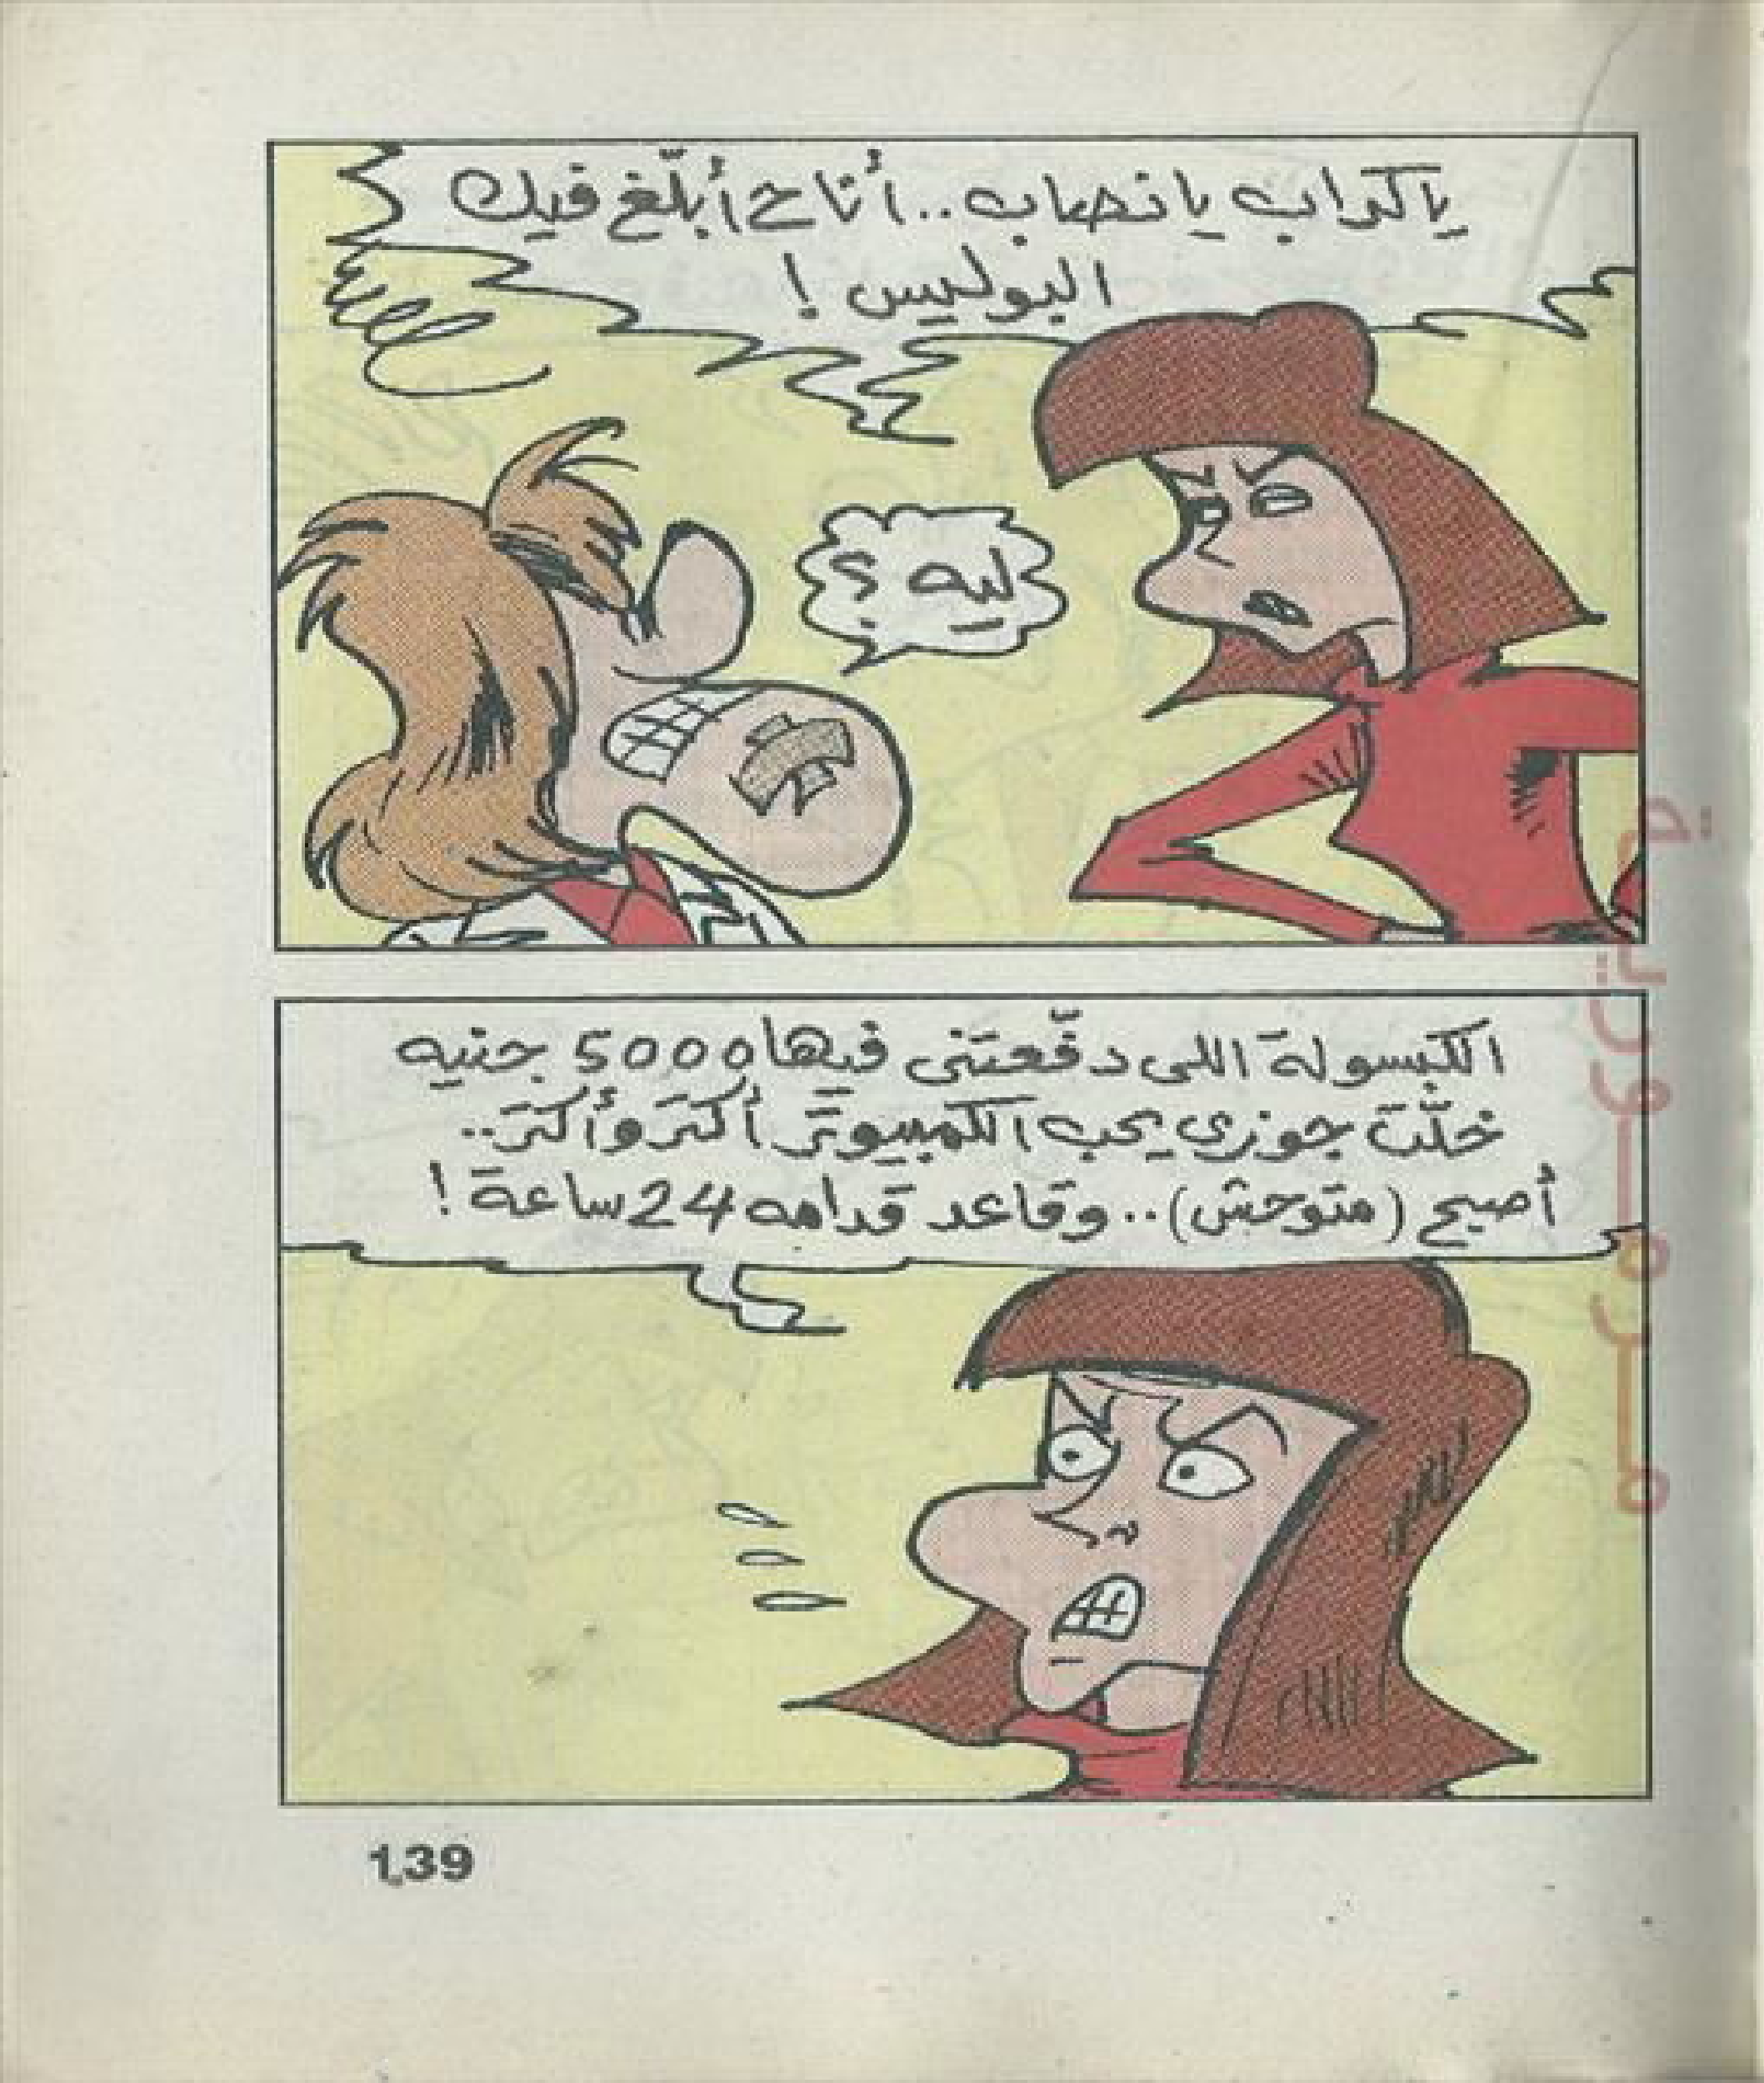 ياكداب يانصاب.. أناح أبلّغ فيك
البوليس !
ليه ؟
الكبسولة اللى دفّعتنى فيها 5000 جنيه
خلّت جوزى يحب الكمبيوتر أكتر وأكتر..
أصبح (متوحش).. وقاعد قدامه 24 ساعة !
139